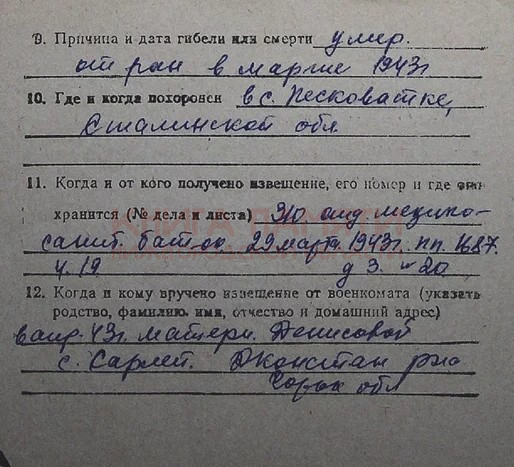 9. Причина и дата гибели или смерти умер.
от ран в марте 1943г
10. Где и когда похоронен в с. Песковатке,
Сталинской обл
11. Когда и от кого получено извещение, его номер и где
хранится (№ дела и листа) 310 отд. медико-
санит. бат-он 29 марта. 1943г. пп. 1687.
ч. 19 д 3. 20
12. Когда и кому вручено извещение от военкомата (указать
родство, фамилию, имя, отчество и домашний адрес)
43г. матери. Денисовой
с. Сарлей. Дконстан р-но
Горьк обл